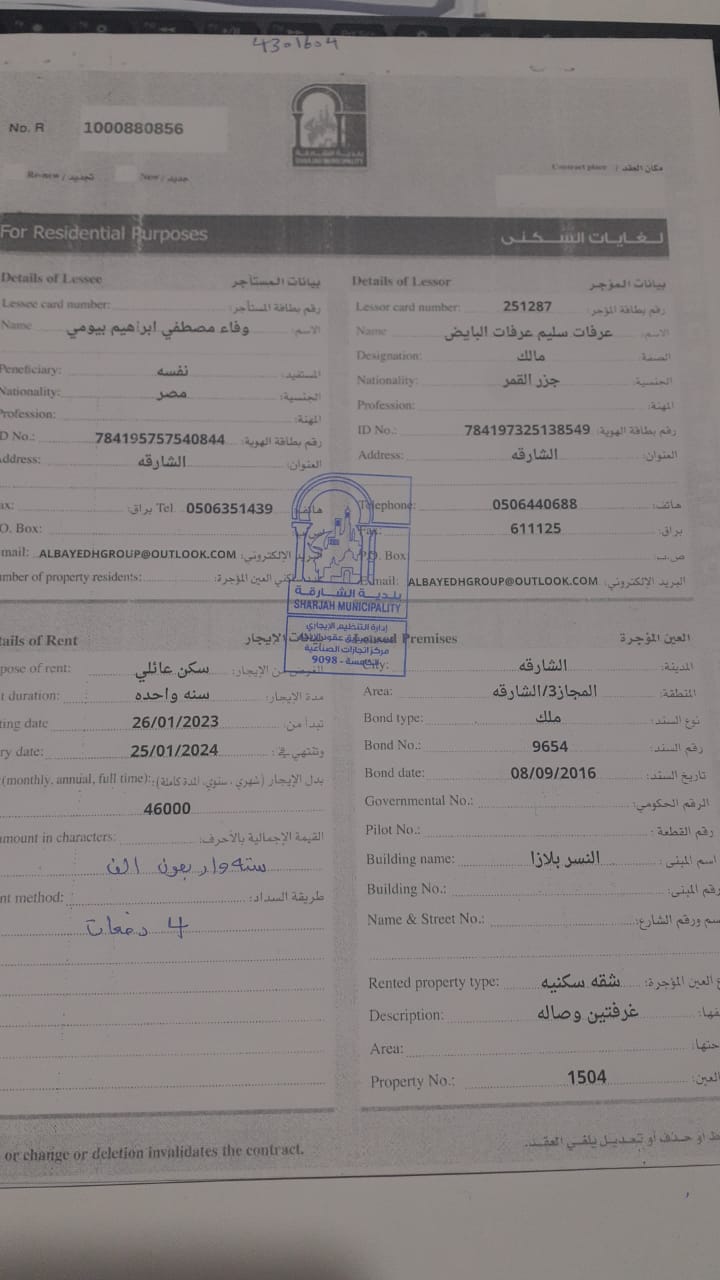 4301604
No. R 1000880856
بلدية الشارقة
SHARJAH MUNICIPALITY
Renew / تجديد New / جديد
Contract place / مكان العقد
For Residential Purposes لغايات السكنى
Details of Lessee بيانات المستأجر
Lessee card number: رقم بطاقة المستأجر:
Name وفاء مصطفي ابراهيم بيومي الاسم:
Peneficiary: نفسه المستفيد:
Nationality: مصر الجنسية:
Profession: المهنة:
D No.: 784195757540844 رقم بطاقة الهوية:
ddress: الشارقه العنوان:
ax: براق: Tel 0506351439 هاتف:
O. Box: ص.ب:
mail: ALBAYEDHGROUP@OUTLOOK.COM البريد الإلكتروني:
mber of property residents: العين المؤجرة:
Details of Lessor بيانات المؤجر
Lessor card number: 251287 رقم بطاقة المؤجر:
Name عرفات سليم عرفات البايض الاسم:
Designation: مالك الصفة:
Nationality: جزر القمر الجنسية:
Profession: المهنة:
ID No.: 784197325138549 رقم بطاقة الهوية:
Address: الشارقه العنوان:
Telephone: 0506440688 هاتف:
Fax: 611125 براق:
P.O. Box ص.ب:
Email: ALBAYEDHGROUP@OUTLOOK.COM البريد الإلكتروني:
بلدية الشارقة
SHARJAH MUNICIPALITY
إدارة التنظيم الإيجاري
مركز انجازات الصناعية
الخامسة - 9098
tails of Rent بيانات الإيجار
pose of rent: سكن عائلي الغرض من الإيجار:
t duration: سنه واحده مدة الإيجار:
ting date 26/01/2023 تبدأ من:
ry date: 25/01/2024 وتنتهي في:
(monthly, annual, full time): بدل الإيجار (شهري، سنوي، المدة كاملة):
46000
mount in characters: القيمة الإجمالية بالأحرف:
سته واربعون الف
nt method: طريقة السداد:
4 دفعات
Leased Premises العين المؤجرة
City: الشارقه المدينة:
Area: المجاز3/الشارقه المنطقة:
Bond type: ملك نوع السند:
Bond No.: 9654 رقم السند:
Bond date: 08/09/2016 تاريخ السند:
Governmental No.: الرقم الحكومي:
Pilot No.: رقم القطعة:
Building name: النسر بلازا اسم المبنى:
Building No.: رقم المبنى:
Name & Street No.: سم ورقم الشارع:
Rented property type: شقه سكنيه العين المؤجرة:
Description: غرفتين وصاله فها:
Area: حتها:
Property No.: 1504 العين:
or change or deletion invalidates the contract. ط او حذف أو تعديل يلغي العقد.